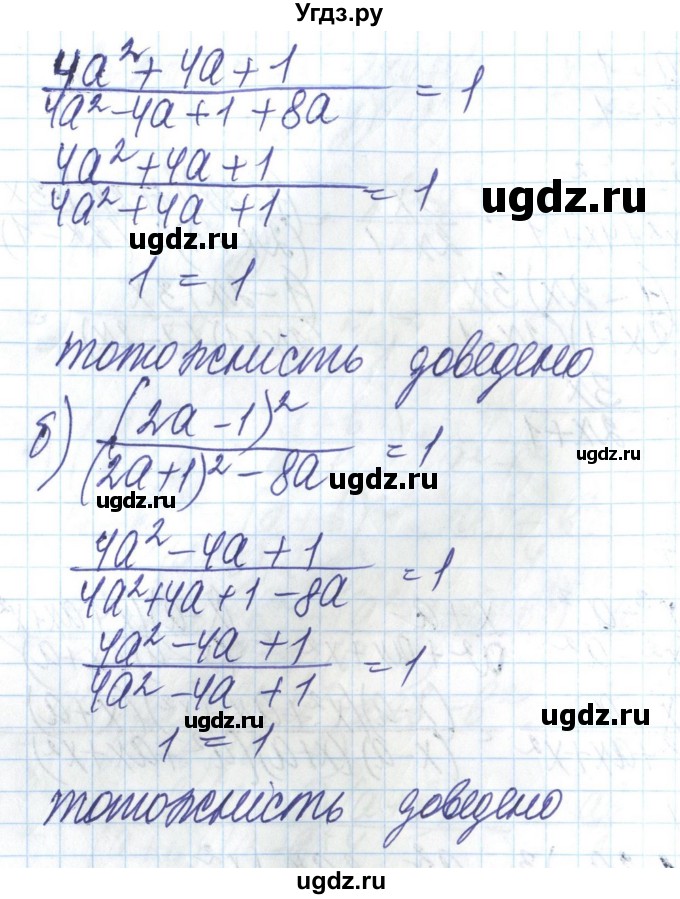 Угдз.ру
4a² + 4a + 1 / 4a² - 4a + 1 + 8a = 1
4a² + 4a + 1 / 4a² + 4a + 1 = 1
ugdz.ru
ugdz.ru
1 = 1
тотожність доведено
б) (2a - 1)² / (2a + 1)² - 8a = 1
ugdz.ru
ugdz.ru
ugdz.ru
4a² - 4a + 1 / 4a² + 4a + 1 - 8a = 1
4a² - 4a + 1 / 4a² - 4a + 1 = 1
ugdz.ru
ugdz.ru
1 = 1
тотожність доведено
ugdz.ru